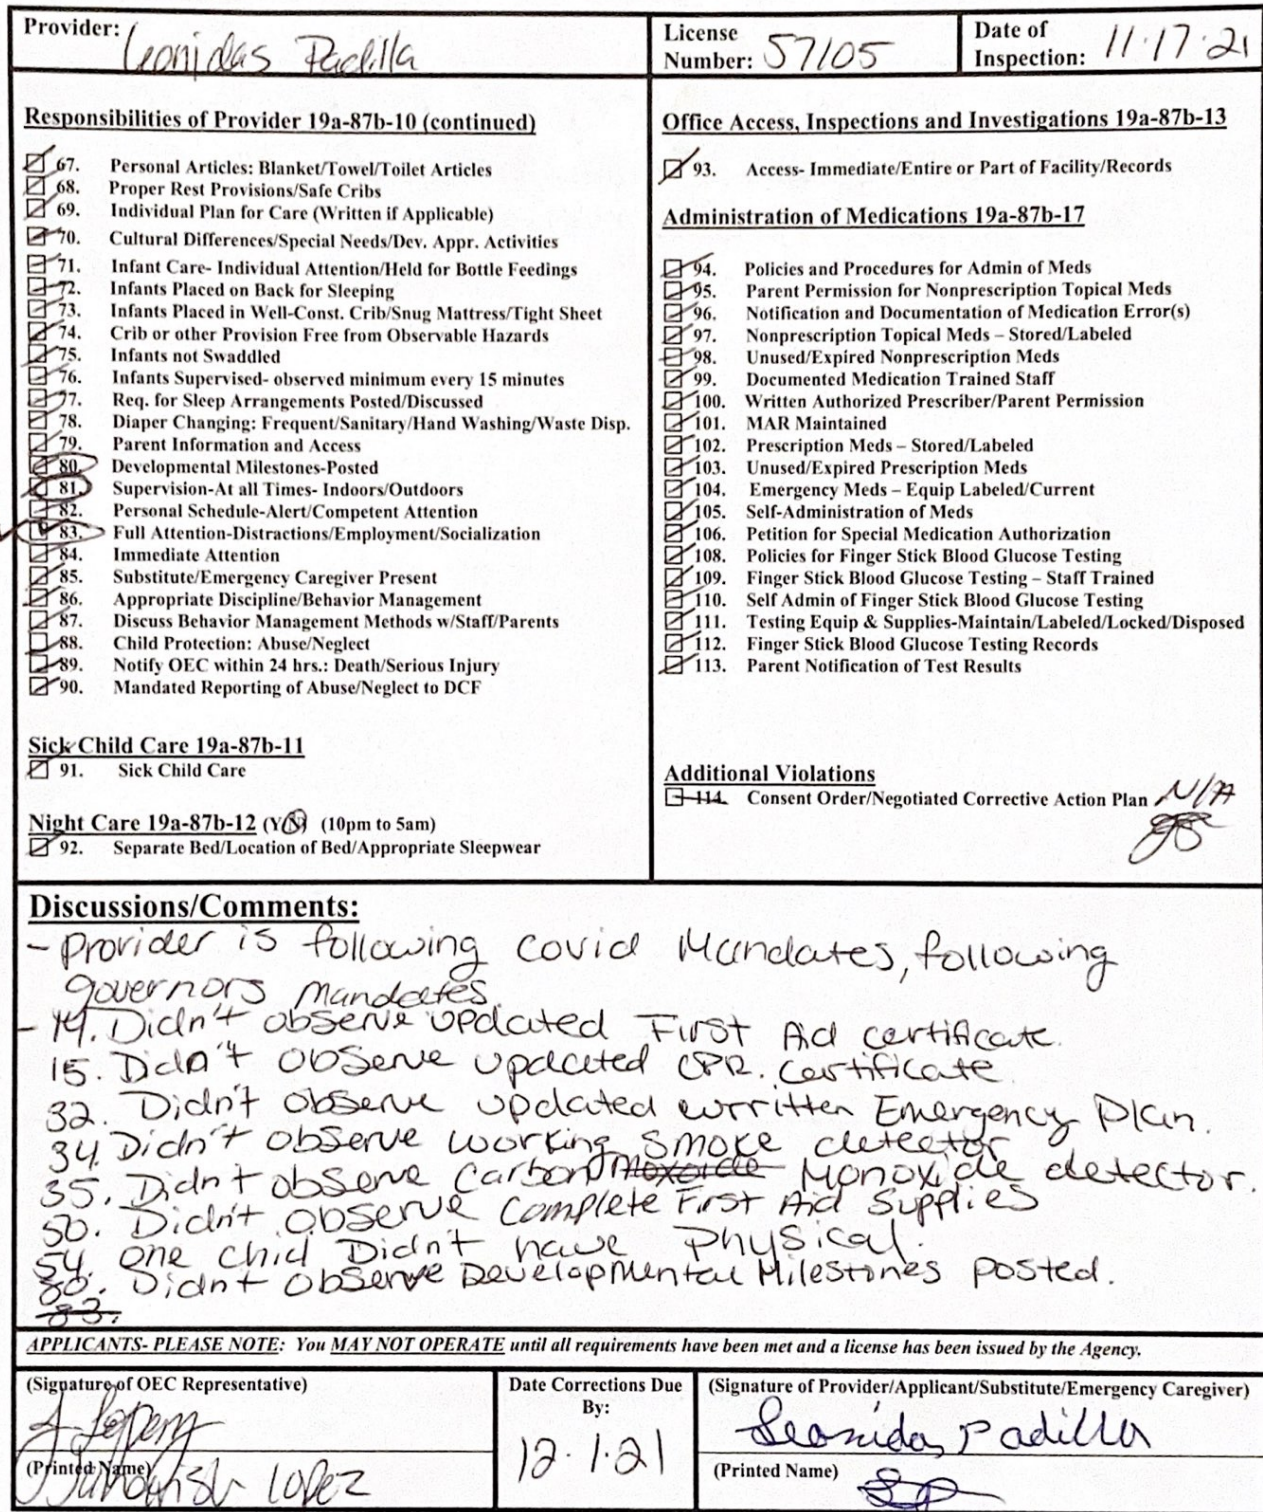 Provider: Leonidas Padilla
License Number: 57105
Date of Inspection: 11·17·21
Responsibilities of Provider 19a-87b-10 (continued)
67. Personal Articles: Blanket/Towel/Toilet Articles
68. Proper Rest Provisions/Safe Cribs
69. Individual Plan for Care (Written if Applicable)
70. Cultural Differences/Special Needs/Dev. Appr. Activities
71. Infant Care- Individual Attention/Held for Bottle Feedings
72. Infants Placed on Back for Sleeping
73. Infants Placed in Well-Const. Crib/Snug Mattress/Tight Sheet
74. Crib or other Provision Free from Observable Hazards
75. Infants not Swaddled
76. Infants Supervised- observed minimum every 15 minutes
77. Req. for Sleep Arrangements Posted/Discussed
78. Diaper Changing: Frequent/Sanitary/Hand Washing/Waste Disp.
79. Parent Information and Access
80. Developmental Milestones-Posted
81. Supervision-At all Times- Indoors/Outdoors
82. Personal Schedule-Alert/Competent Attention
83. Full Attention-Distractions/Employment/Socialization
84. Immediate Attention
85. Substitute/Emergency Caregiver Present
86. Appropriate Discipline/Behavior Management
87. Discuss Behavior Management Methods w/Staff/Parents
88. Child Protection: Abuse/Neglect
89. Notify OEC within 24 hrs.: Death/Serious Injury
90. Mandated Reporting of Abuse/Neglect to DCF
Sick Child Care 19a-87b-11
91. Sick Child Care
Night Care 19a-87b-12 (Y/N) (10pm to 5am)
92. Separate Bed/Location of Bed/Appropriate Sleepwear
Office Access, Inspections and Investigations 19a-87b-13
93. Access- Immediate/Entire or Part of Facility/Records
Administration of Medications 19a-87b-17
94. Policies and Procedures for Admin of Meds
95. Parent Permission for Nonprescription Topical Meds
96. Notification and Documentation of Medication Error(s)
97. Nonprescription Topical Meds – Stored/Labeled
98. Unused/Expired Nonprescription Meds
99. Documented Medication Trained Staff
100. Written Authorized Prescriber/Parent Permission
101. MAR Maintained
102. Prescription Meds – Stored/Labeled
103. Unused/Expired Prescription Meds
104. Emergency Meds – Equip Labeled/Current
105. Self-Administration of Meds
106. Petition for Special Medication Authorization
108. Policies for Finger Stick Blood Glucose Testing
109. Finger Stick Blood Glucose Testing – Staff Trained
110. Self Admin of Finger Stick Blood Glucose Testing
111. Testing Equip & Supplies-Maintain/Labeled/Locked/Disposed
112. Finger Stick Blood Glucose Testing Records
113. Parent Notification of Test Results
Additional Violations
114. Consent Order/Negotiated Corrective Action Plan N/A
Discussions/Comments:
- Provider is following covid Mandates, following
governors Mandates.
- 14. Didn't observe updated First Aid certificate.
15. Didn't observe updated CPR. certificate
32. Didn't observe updated written Emergency Plan.
34. Didn't observe working smoke detector
35. Didn't observe Carbon Monoxide detector.
50. Didn't observe Complete First Aid Supplies
54. one chid Didn't have physical.
80. Didn't observe Developmental Milestones posted.
83.
APPLICANTS- PLEASE NOTE: You MAY NOT OPERATE until all requirements have been met and a license has been issued by the Agency.
(Signature of OEC Representative)
(Printed Name) Lopez
Date Corrections Due By:
12·1·21
(Signature of Provider/Applicant/Substitute/Emergency Caregiver)
Leonidas Padilla
(Printed Name)